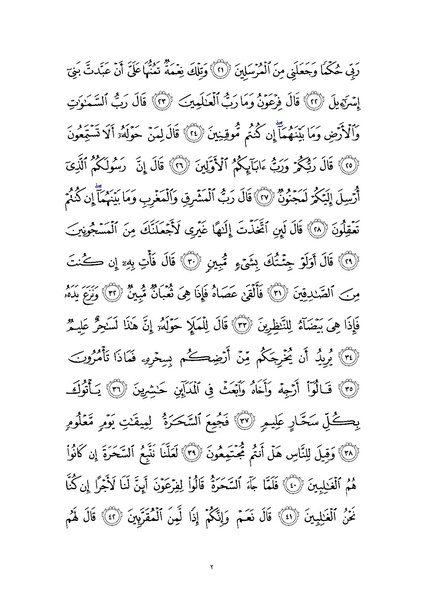 رَبِّى حُكْمًا وَجَعَلَنِى مِنَ ٱلْمُرْسَلِينَ ﴿٢١﴾ وَتِلْكَ نِعْمَةٌ تَمُنُّهَا عَلَىَّ أَنْ عَبَّدتَّ بَنِىٓ
إِسْرَٰٓءِيلَ ﴿٢٢﴾ قَالَ فِرْعَوْنُ وَمَا رَبُّ ٱلْعَٰلَمِينَ ﴿٢٣﴾ قَالَ رَبُّ ٱلسَّمَٰوَٰتِ
وَٱلْأَرْضِ وَمَا بَيْنَهُمَآ ۖ إِن كُنتُم مُّوقِنِينَ ﴿٢٤﴾ قَالَ لِمَنْ حَوْلَهُۥٓ أَلَا تَسْتَمِعُونَ
﴿٢٥﴾ قَالَ رَبُّكُمْ وَرَبُّ ءَابَآئِكُمُ ٱلْأَوَّلِينَ ﴿٢٦﴾ قَالَ إِنَّ رَسُولَكُمُ ٱلَّذِىٓ
أُرْسِلَ إِلَيْكُمْ لَمَجْنُونٌ ﴿٢٧﴾ قَالَ رَبُّ ٱلْمَشْرِقِ وَٱلْمَغْرِبِ وَمَا بَيْنَهُمَآ ۖ إِن كُنتُمْ
تَعْقِلُونَ ﴿٢٨﴾ قَالَ لَئِنِ ٱتَّخَذْتَ إِلَٰهًا غَيْرِى لَأَجْعَلَنَّكَ مِنَ ٱلْمَسْجُونِينَ
﴿٢٩﴾ قَالَ أَوَلَوْ جِئْتُكَ بِشَىْءٍ مُّبِينٍ ﴿٣٠﴾ قَالَ فَأْتِ بِهِۦٓ إِن كُنتَ
مِنَ ٱلصَّٰدِقِينَ ﴿٣١﴾ فَأَلْقَىٰ عَصَاهُ فَإِذَا هِىَ ثُعْبَانٌ مُّبِينٌ ﴿٣٢﴾ وَنَزَعَ يَدَهُۥ
فَإِذَا هِىَ بَيْضَآءُ لِلنَّٰظِرِينَ ﴿٣٣﴾ قَالَ لِلْمَلَإِ حَوْلَهُۥٓ إِنَّ هَٰذَا لَسَٰحِرٌ عَلِيمٌ
﴿٣٤﴾ يُرِيدُ أَن يُخْرِجَكُم مِّنْ أَرْضِكُم بِسِحْرِهِۦ فَمَاذَا تَأْمُرُونَ
﴿٣٥﴾ قَالُوٓا۟ أَرْجِهْ وَأَخَاهُ وَٱبْعَثْ فِى ٱلْمَدَآئِنِ حَٰشِرِينَ ﴿٣٦﴾ يَأْتُوكَ
بِكُلِّ سَحَّارٍ عَلِيمٍ ﴿٣٧﴾ فَجُمِعَ ٱلسَّحَرَةُ لِمِيقَٰتِ يَوْمٍ مَّعْلُومٍ
﴿٣٨﴾ وَقِيلَ لِلنَّاسِ هَلْ أَنتُم مُّجْتَمِعُونَ ﴿٣٩﴾ لَعَلَّنَا نَتَّبِعُ ٱلسَّحَرَةَ إِن كَانُوا۟
هُمُ ٱلْغَٰلِبِينَ ﴿٤٠﴾ فَلَمَّا جَآءَ ٱلسَّحَرَةُ قَالُوا۟ لِفِرْعَوْنَ أَئِنَّ لَنَا لَأَجْرًا إِن كُنَّا
نَحْنُ ٱلْغَٰلِبِينَ ﴿٤١﴾ قَالَ نَعَمْ وَإِنَّكُمْ إِذًا لَّمِنَ ٱلْمُقَرَّبِينَ ﴿٤٢﴾ قَالَ لَهُم
٢